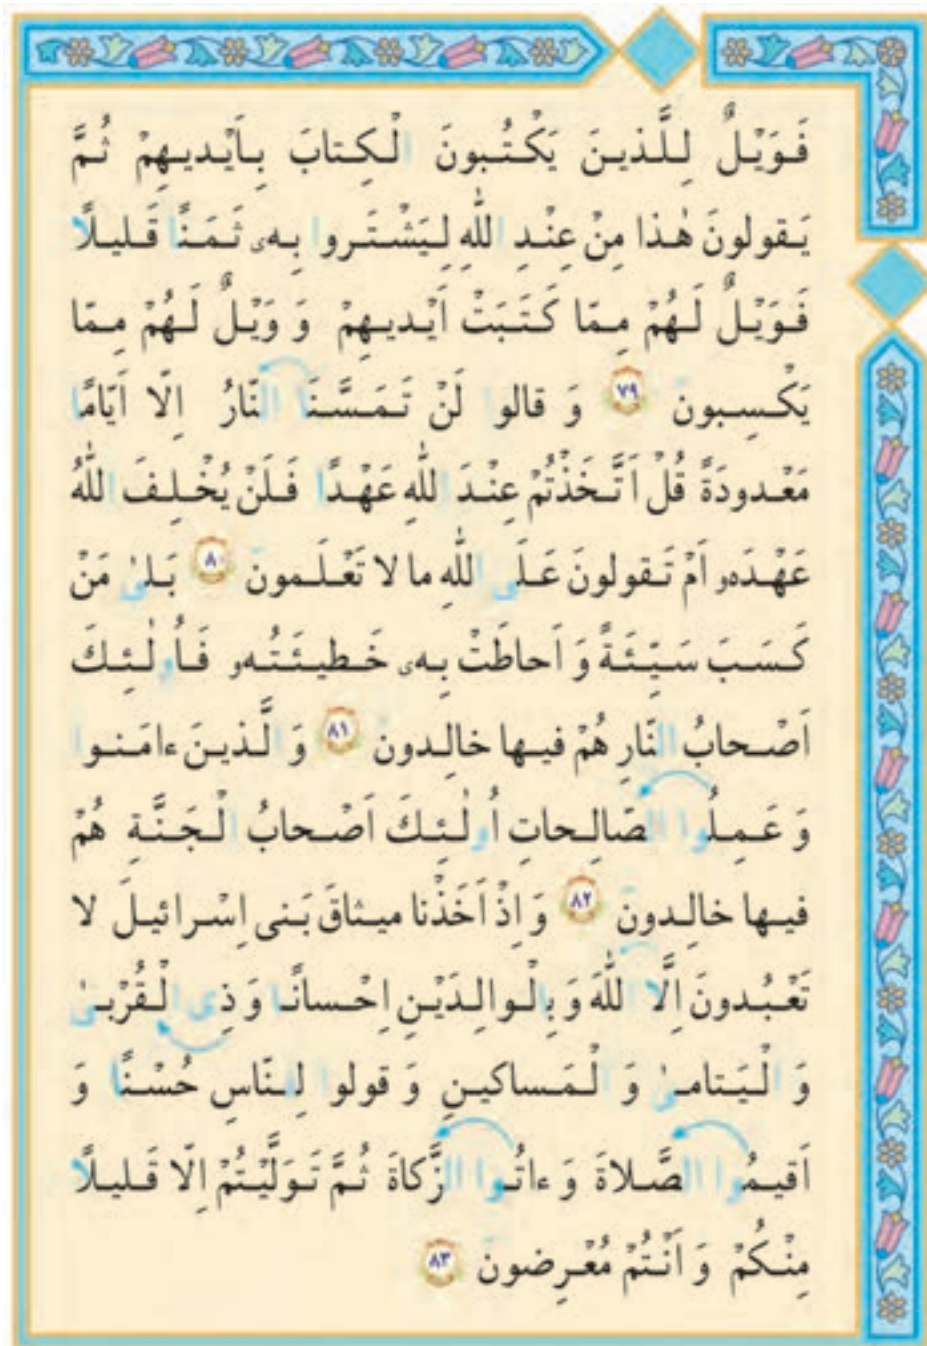 فَوَيْلٌ لِلَّذينَ يَكْتُبونَ الْكِتابَ بِاَيْديهِمْ ثُمَّ
يَقولونَ هٰذا مِنْ عِنْدِ اللّٰهِ لِيَشْتَروا بِهٖ ثَمَنًا قَليلًا
فَوَيْلٌ لَهُمْ مِمّا كَتَبَتْ اَيْديهِمْ وَ وَيْلٌ لَهُمْ مِمّا
يَكْسِبونَ ﴿٧٩﴾ وَ قالوا لَنْ تَمَسَّنَا النّارُ اِلّا اَيّامًا
مَعْدودَةً قُلْ اَتَّخَذْتُمْ عِنْدَ اللّٰهِ عَهْدًا فَلَنْ يُخْلِفَ اللّٰهُ
عَهْدَهٗ اَمْ تَقولونَ عَلَى اللّٰهِ ما لا تَعْلَمونَ ﴿٨٠﴾ بَلىٰ مَنْ
كَسَبَ سَيِّئَةً وَ اَحاطَتْ بِهٖ خَطيئَتُهٗ فَاُولٰئِكَ
اَصْحابُ النّارِ هُمْ فيها خالِدونَ ﴿٨١﴾ وَ الَّذينَ ءامَنوا
وَ عَمِلُوا الصّالِحاتِ اُولٰئِكَ اَصْحابُ الْجَنَّةِ هُمْ
فيها خالِدونَ ﴿٨٢﴾ وَ اِذْ اَخَذْنا ميثاقَ بَنى اِسْرائيلَ لا
تَعْبُدونَ اِلَّا اللّٰهَ وَ بِالْوالِدَيْنِ اِحْسانًا وَ ذِى الْقُرْبىٰ
وَ الْيَتامىٰ وَ الْمَساكينِ وَ قولوا لِلنّاسِ حُسْنًا وَ
اَقيمُوا الصَّلاةَ وَ ءاتُوا الزَّكاةَ ثُمَّ تَوَلَّيْتُمْ اِلّا قَليلًا
مِنْكُمْ وَ اَنْتُمْ مُعْرِضونَ ﴿٨٣﴾